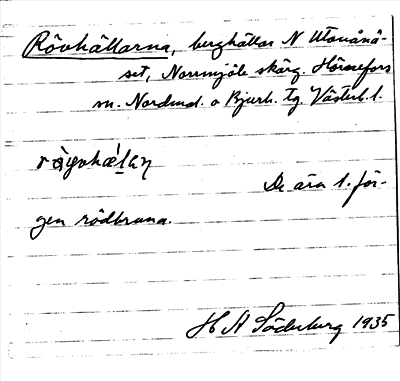 Rövhällarna, berghällar N Utanånä-
set, Norrmjöle skärg. Hörnefors
sn. Nordmal. o Bjurh. tg. Västerb. l.
De äro t. fär-
gen rödbruna.
H A Söderberg 1935